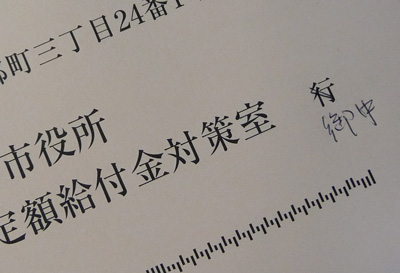 町三丁目24番1
市役所
定額給付金対策室 行
御中